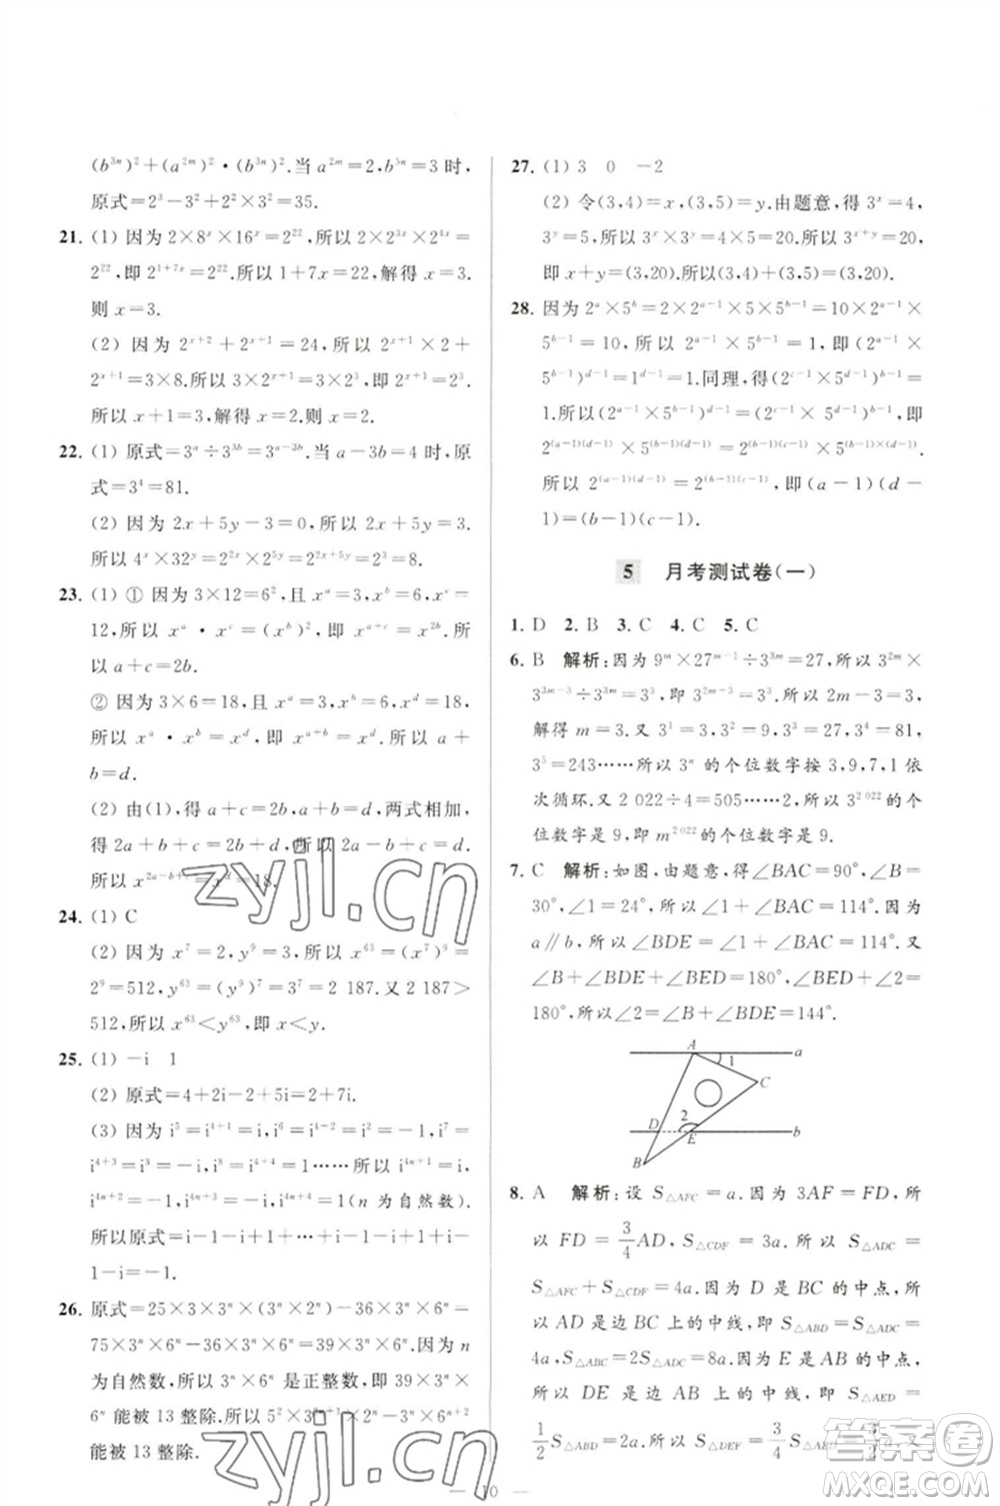 (b³ⁿ)²+(a²ᵐ)²·(b³ⁿ)².当 a²ᵐ=2,b³ⁿ=3 时,
原式=2³-3²+2²×3²=35.
21. (1) 因为 2×8ˣ×16ˣ=2²²,所以 2×2³ˣ×2⁴ˣ=
2²²,即 2¹⁺⁷ˣ=2²².所以 1+7x=22,解得 x=3.
则 x=3.
(2) 因为 2ˣ⁺²+2ˣ⁺¹=24,所以 2ˣ⁺¹×2+
2ˣ⁺¹=3×8.所以 3×2ˣ⁺¹=3×2³,即 2ˣ⁺¹=2³.
所以 x+1=3,解得 x=2.则 x=2.
22. (1) 原式=3ᵃ÷3³ᵇ=3ᵃ⁻³ᵇ.当 a-3b=4 时,原
式=3⁴=81.
(2) 因为 2x+5y-3=0,所以 2x+5y=3.
所以 4ˣ×32ʸ=2²ˣ×2⁵ʸ=2²ˣ⁺⁵ʸ=2³=8.
23. (1) ① 因为 3×12=6²,且 xᵃ=3,xᵇ=6,xᶜ=
12,所以 xᵃ·xᶜ=(xᵇ)²,即 xᵃ⁺ᶜ=x²ᵇ.所
以 a+c=2b.
② 因为 3×6=18,且 xᵃ=3,xᵇ=6,xᵈ=18,
所以 xᵃ·xᵇ=xᵈ,即 xᵃ⁺ᵇ=xᵈ.所以 a+
b=d.
(2) 由(1),得 a+c=2b,a+b=d,两式相加,
得 2a+b+c=2b+d.所以 2a-b+c=d.
所以 x²ᵃ⁻ᵇ⁺ᶜ=xᵈ=18.
24. (1) C
(2) 因为 x⁷=2,y⁹=3,所以 x⁶³=(x⁷)⁹=
2⁹=512,y⁶³=(y⁹)⁷=3⁷=2 187.又 2 187>
512,所以 x⁶³<y⁶³,即 x<y.
25. (1) -i 1
(2) 原式=4+2i-2+5i=2+7i.
(3) 因为 i⁵=i⁴⁺¹=i,i⁶=i⁴⁺²=-1,i⁷=
i⁴⁺³=-i,i⁸=i⁴⁺⁴=1……所以 i⁴ⁿ⁺¹=i,
i⁴ⁿ⁺²=-1,i⁴ⁿ⁺³=-i,i⁴ⁿ⁺⁴=1(n 为自然数).
所以原式=i-1-i+1+…+i-1-i+1+i=
i.
26. 原式=25×3×3ⁿ×(3ⁿ×2ⁿ)-36×3ⁿ×6ⁿ=
75×3ⁿ×6ⁿ-36×3ⁿ×6ⁿ=39×3ⁿ×6ⁿ.因为 n
为自然数,所以 3ⁿ×6ⁿ 是正整数,即 39×3ⁿ×
6ⁿ 能被 13 整除.所以 5²×3²ⁿ⁺¹×2ⁿ-
能被 13 整除.
27. (1) 3 0 -2
(2) 令(3,4)=x,(3,5)=y.由题意,得 3ˣ=4,
3ʸ=5,所以 3ˣ×3ʸ=4×5=20.所以 3ˣ⁺ʸ=20,
即 x+y=(3,20).所以(3,4)+(3,5)=(3,20).
28. 因为 2ᵃ×5ᵇ=2×2ᵃ⁻¹×5×5ᵇ⁻¹=10×2ᵃ⁻¹×
5ᵇ⁻¹=10,所以 2ᵃ⁻¹×5ᵇ⁻¹=1.所以(2ᵃ⁻¹×
5ᵇ⁻¹)ᵈ⁻¹=1.同理,得(2ᶜ⁻¹×5ᵈ⁻¹)ᵇ⁻¹=
1.所以(2ᵃ⁻¹×5ᵇ⁻¹)ᵈ⁻¹=(2ᶜ⁻¹×5ᵈ⁻¹)ᵇ⁻¹,即
2⁽ᵃ⁻¹⁾⁽ᵈ⁻¹⁾×5⁽ᵇ⁻¹⁾⁽ᵈ⁻¹⁾=2⁽ᵇ⁻¹⁾⁽ᶜ⁻¹⁾×5⁽ᵈ⁻¹⁾⁽ᵇ⁻¹⁾.
所以 2⁽ᵃ⁻¹⁾⁽ᵈ⁻¹⁾=2⁽ᵇ⁻¹⁾⁽ᶜ⁻¹⁾,即(a-1)(d-
1)=(b-1)(c-1).
5 月考测试卷(一)
1. D 2. B 3. C 4. C 5. C
6. B 解析:因为 9ᵐ×27ᵐ⁻¹÷3³ᵐ=27,所以 3²ᵐ×
3³ᵐ⁻³÷3³ᵐ=3³,即 3²ᵐ⁻³=3³.所以 2m-3=3,
解得 m=3.又 3¹=3,3²=9,3³=27,3⁴=81,
3⁵=243……所以 3ⁿ 的个位数字按 3,9,7,1 依
次循环.又 2 022÷4=505……2,所以 3²⁰²² 的个
位数字是 9,即 m²⁰²² 的个位数字是 9.
7. C 解析:如图,由题意,得∠BAC=90°,∠B=
30°,∠1=24°,所以∠1+∠BAC=114°.因为
a∥b,所以∠BDE=∠1+∠BAC=114°.又
∠B+∠BDE+∠BED=180°,∠BED+∠2=
180°,所以∠2=∠B+∠BDE=144°.
A
a
1
C
D
2
E
b
B
8. A 解析:设 S△AFC=a.因为 3AF=FD,所
以 FD=3/4AD,S△CDF=3a.所以 S△ADC=
S△AFC+S△CDF=4a.因为 D 是 BC 的中点,
所以 AD 是 BC 上的中线,即 S△ABD=S△ADC=
4a,S△ABC=2S△ADC=8a.因为 E 是 AB 的中点,
所以 DE 是 AB 上的中线,即 S△AED=
1/2S△ABD=2a.所以 S△DEF=3/4S△AED=3/2a.又
zyjl.cn
zyjl.cn
10
答案圈
MXQE.COM